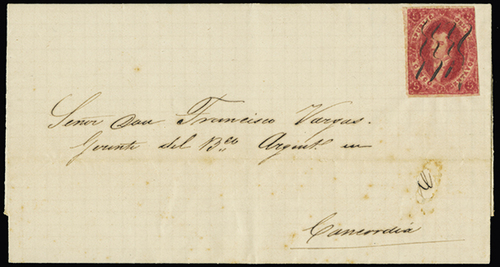 Señor Don Francisco Vargas.
Gerente del B.co Argent.º en
Concordia